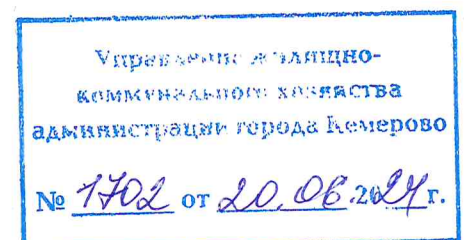 Управление жилищно-
коммунального хозяйства
администрации города Кемерово
№ 1702 от 20.06.2024г.